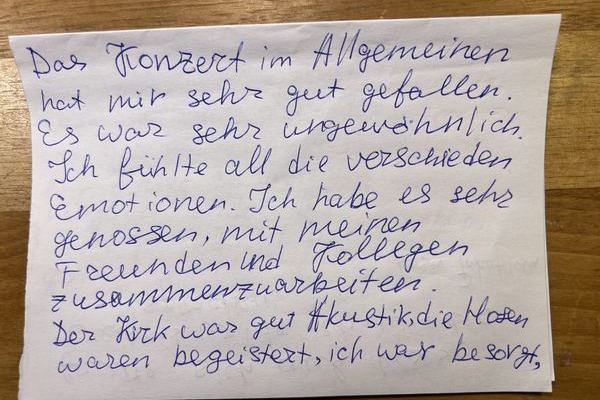 Das Konzert im Allgemeinen
hat mir sehr gut gefallen.
Es war sehr ungewöhnlich.
Ich fühlte all die verschieden
Emotionen. Ich habe es sehr
genossen, mit meinen
Freunden und Kollegen
zusammenzuarbeiten.
Der Kirk war gut Akustik, die Hosen
waren begeistert, ich war besorgt,